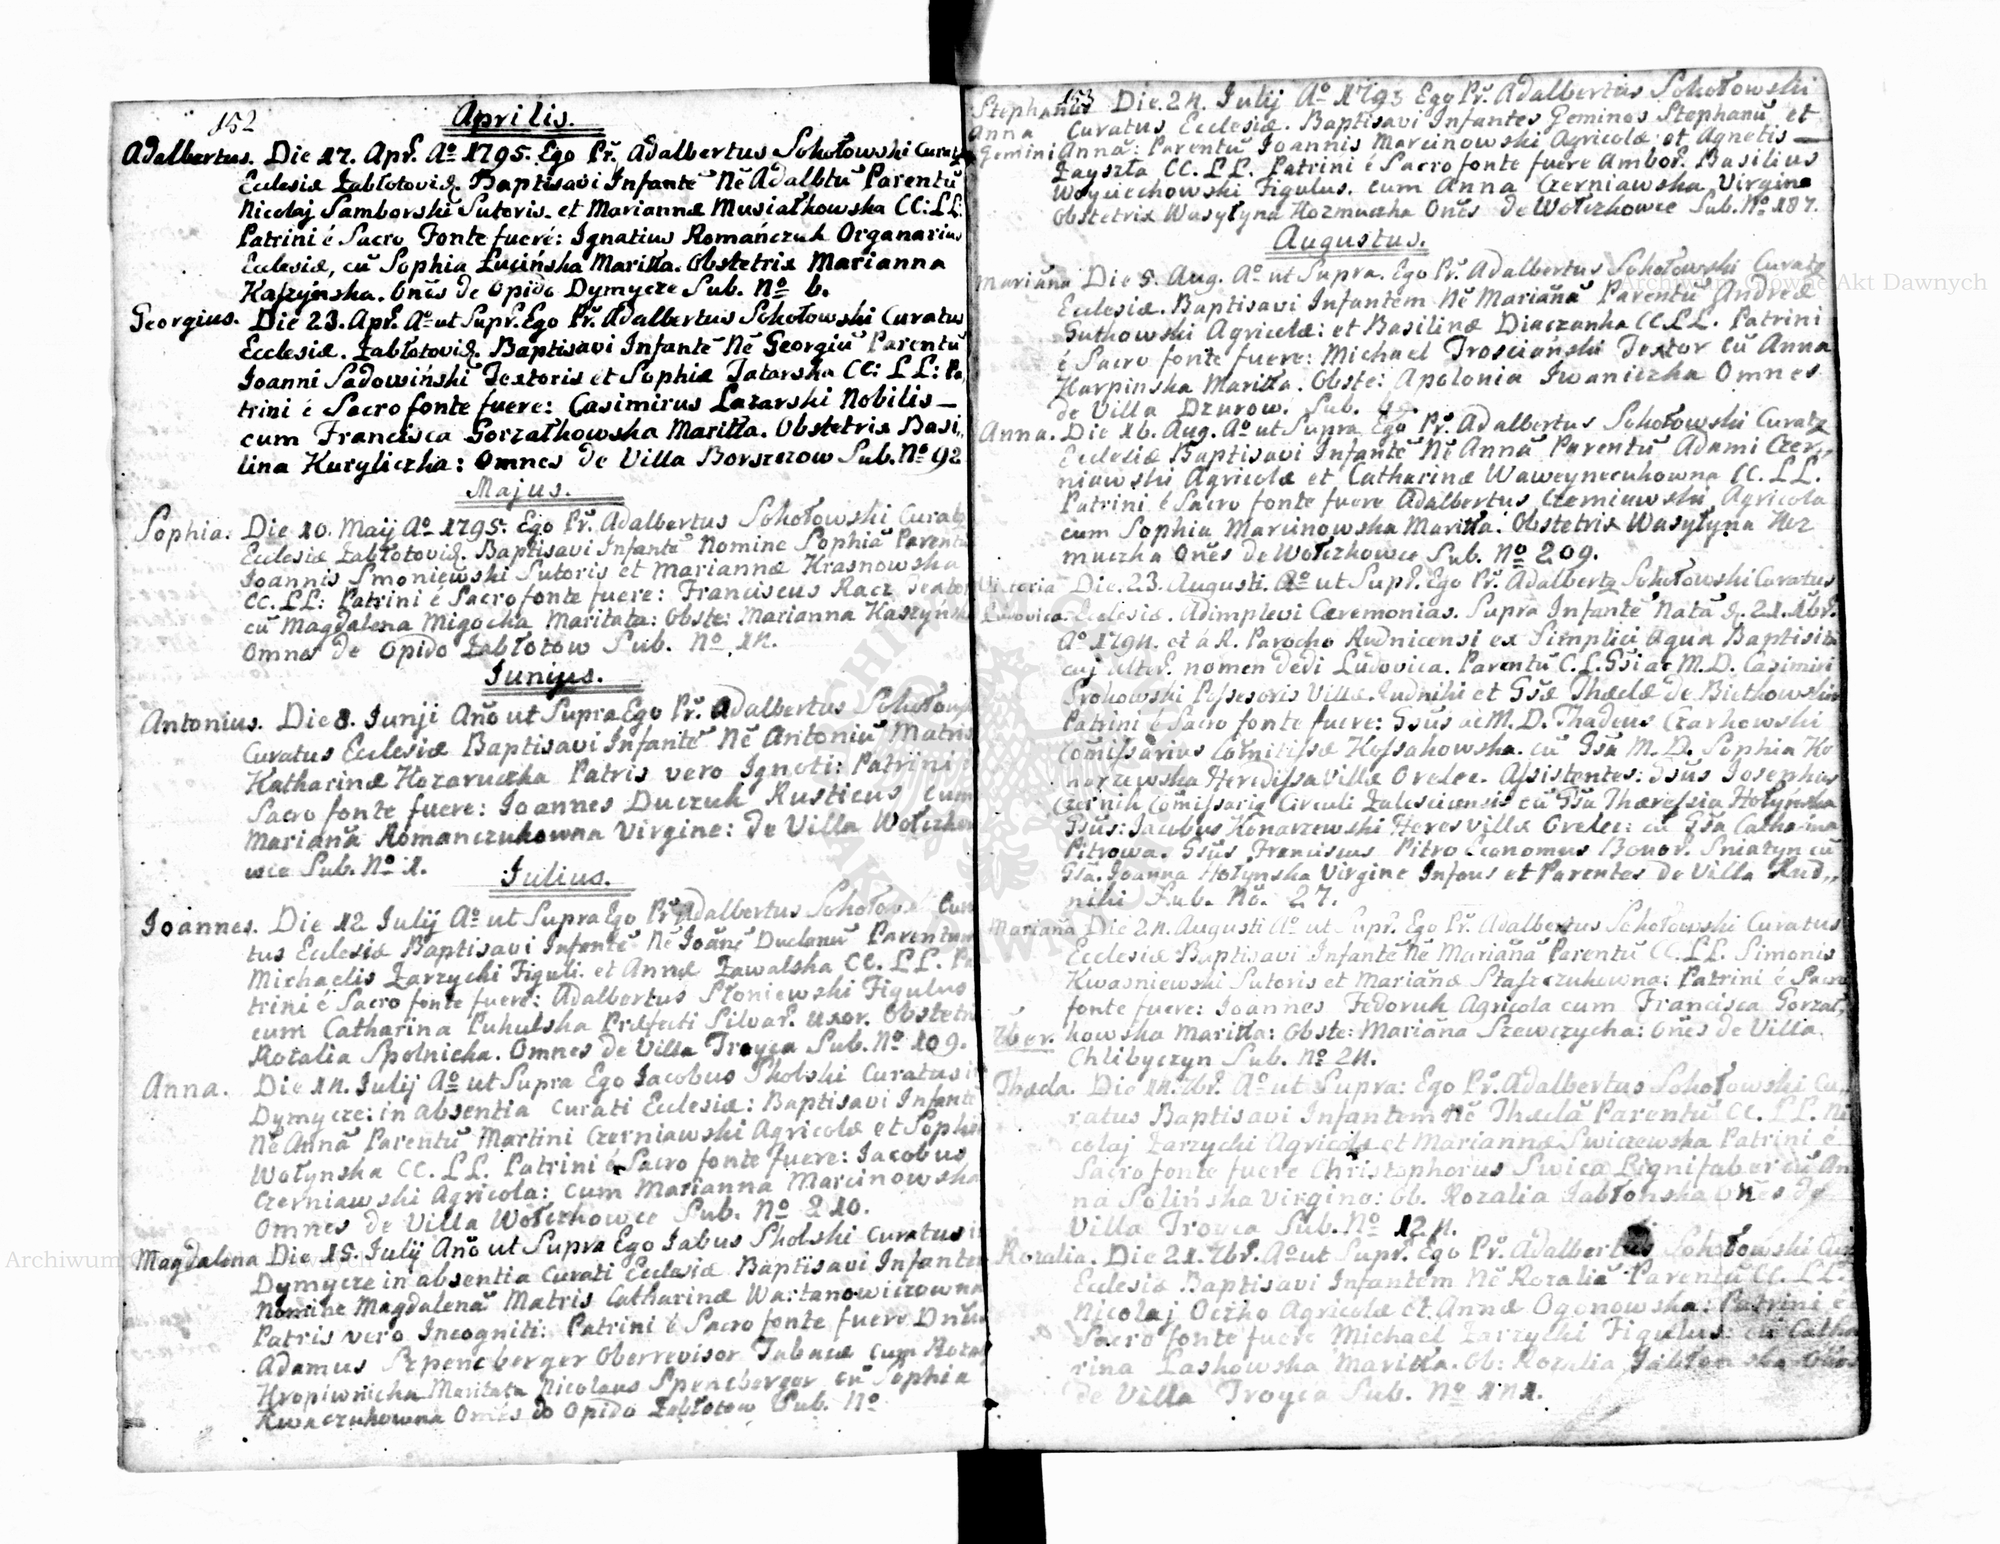 152
Aprilis.
Adalbertus. Die 17. Apr. Aº 1795. Ego Pr. Adalbertus Sokołowski Curatq
Eclesiæ Zabłotoviq. Baptisavi Infantē Nē Adalbtū Parentū
Nicolaj Samborski Sutoris et Mariannæ Musiałkowska CC: LL:
Patrini é Sacro Fonte fueré: Ignatius Romańczuk Organarius
Eclesiæ, cū Sophia Łucińska Maritta. Obstetrix Marianna
Kaszyńska. Onēs de Opido Dymycze Sub. Nº 6.
Georgius. Die 23. Apr. Aº ut Supr. Ego Pr. Adalbertus Sokołowski Curatus
Ecclesiæ. Zabłotoviq. Baptisavi Infantē Nē Georgiū Parentū
Joanni Sadowiński Textoris et Sophiæ Tatarska CC: LL: Pa
trini é Sacro fonte fuere: Casimirus Lazarski Nobilis —
cum Francisca Gorzałkowska Maritta. Obstetrix Basi,,
lina Kuryliczka: Omnes de Villa Borszczow Sub. Nº 92
Majus.
Sophia. Die 10. Maij Aº 1795. Ego Pr. Adalbertus Sokołowski Curatq
Ecclesiæ Zabłotoviq. Baptisavi Infantē Nomine Sophiā Parentū
Joannis Smoniewski Sutoris et Mariannæ Krasnowska
CC. LL: Patrini é Sacro fonte fuere: Franciscus Racz Textor
cū Magdalena Migocka Maritata: Obste: Marianna Kaszyńska
Omnes de Opido Zabłotow Sub. Nº 14.
Junijus.
Antonius. Die 8. Junji Año ut Supra Ego Pr. Adalbertus Sokołowski
Curatus Ecclesiæ Baptisavi Infantē Nē Antoniū Matris
Katharinæ Kozaruczka Patris vero Ignoti: Patrini é
Sacro fonte fuere: Joannes Duczuk Rusticus cum
Mariañā Romanczukowna Virgine: de Villa Wołczko
wce Sub. Nº 1.
Julius.
Joannes. Die 12 Julij Aº ut Supra Ego Pr Adalbertus Sokołow Cura
tus Ecclesiæ Baptisavi Infantē Nē Joānē Duclanū Parentum
Michaelis Zarzycki Figuli. et Annæ Zawalska CC. LL. Pa
trini é Sacro fonte fuere: Adalbertus Słoniewski Figulus
cum Catharina Puhulska Præfecti Silvar. uxor. Obstetri
Rozalia Spolnicka. Omnes de Villa Troyca Sub. Nº 109.
Anna. Die 14. Julij Aº ut Supra Ego Jacobus Skolski Curatus in
Dymycze: in absentia Curati Ecclesiæ: Baptisavi Infantē
Nē Annā Parentū Martini Czerniawski Agricolæ et Sophiæ
Wołynska CC. LL. Patrini é Sacro fonte fuere: Jacobus
Czerniawski Agricola: cum Marianna Marcinowska
Omnes de Villa Wołczkowce Sub. Nº 210.
Magdalena Die 15. Julij Año ut Supra Ego Jabus Skolski Curatus in
Dymycze in absentia Curati Ecclesiæ Baptisavi Infantem
Nomine Magdalenā Matris Catharinæ Wartanowiczowna
Patris vero Incogniti: Patrini é Sacro fonte fuere Dnūs
Adamus Szpencberger Oberrevisor Tabacæ cum Roza
Kropiwnicka Maritata Nicolaus Spencberger cū Sophia
Kwaczukowna Omēs do Opido Zabłotow Sub. Nº
153
Stephanus Die. 24. Julij Aº 1795 Ego Pr. Adalbertus Sokołowski
Anna Curatus Ecclesiæ. Baptisavi Infantes Geminos Stephanū et
Gemini Annā: Parentū Joannis Marcinowski Agricolæ et Agnetis —
Zayszła CC. LL. Patrini é Sacro fonte fuere Ambor. Basilius
Woyciechowski Figulus. cum Anna Czerniawska Virgine
Obstetrix Wasyłyna Kozmuczka Onēs de Wołczkowce Sub. Nº 187.
Augustus.
Mariañā Die 5. Aug. Aº ut Supra. Ego Pr. Adalbertus Sokołowski Curatq
Ecclesiæ. Baptisavi Infantem Nē Mariañā Parentū Andreæ
Gutkowski Agricolæ: et Basilinæ Diaczanka CC LL. Patrini
é Sacro fonte fuere: Michael Trosciański Textor cū Anna
Karpinska Maritta. Obste: Apolonia Iwaniczka Omnes
de Villa Dzurow. Sub.
Anna. Die 16. Aug. Aº ut Supra Ego Pr. Adalbertus Sokołowski Curatq
Ecclesiæ Baptisavi Infantē Nē Annā Parentū Adami Czer,,
niawski Agricolæ et Catharinæ Waweynecukowna CC. LL.
Patrini é Sacro fonte fuere Adalbertus Czerniawski Agricola
cum Sophia Marcinowska Maritta. Obstetrix Wasyłyna Koz
muczka Onēs de Wołczkowce Sub. Nº 209.
Victoria Die. 23. Augusti. Aº ut Supr. Ego Pr. Adalbertq Sokołowski Curatus
Ludovica Ecclesiæ. Adimplevi Cæremonias. Supra Infantē Natā q. 21. Xbr.
Aº 1794. et á R. Parocho Rudnicensi ex Simplici Aqua Baptisatā
cuj alter. nomen dedi Ludovica. Parentū C. L. Gsi ac M. D. Casimiri
Prokowski Possesoris Villæ Rudniki et Gsæ Thæclæ de Bietkowskie
Patrini é Sacro fonte fuere: Gsūs ac M. D. Thadeus Czarkowski
Comissarius Comitissæ Kossakowska. cū Gsa M. D. Sophia Ko
narzewska Heredissa Villæ Orelec. Assistentes: Gsūs Josephus
Czernek Comissariq Circuli Zalescicensis cū Gsa Theressia Hołyńska
Gsūs: Jacobus Konarzewski Heres Villæ Orelec: cū Gsa Catharina
Pitrowa. Gsūs Franciscus Pitro Economus Bonor. Sniatyn cū
Gsa. Joanna Hołynska Virgine Infans et Parentes de Villa Rud,,
niki Sub. No. 27.
Mariañā Die 24. Augusti Aº ut Supr. Ego Pr. Adalbertus Sokołowski Curatus
Ecclesiæ Baptisavi Infantē Nē Mariañā Parentū CC. LL. Simonis
Kwasniewski Sutoris et Mariañæ Staszczukowna: Patrini é Sacro
fonte fuere: Joannes Fedoruk Agricola cum Francisca Gorzał,
7ber. kowska Maritta: Obste: Mariāna Szewczycha: Onēs de Villa
Chlibyczyn Sub. Nº 24.
Thæcla. Die 14. 7br. Aº ut Supra: Ego Pr. Adalbertus Sokołowski Cu,,
ratus Baptisavi Infantem Nē Thæclā Parentū CC. LL. Ni
colaj Zarzycki Agricolæ et Mariannæ Swiczewska Patrini é
Sacro fonte fuere Christophorus Swica Lignifaber cū An
na Solińska Virgine: Ob. Rozalia Jabłonska Onēs de
Villa Troyca Sub. Nº 124.
Rozalia. Die 21. 7br. Aº ut Supr. Ego Pr. Adalbertus Sokołowski Cur
Ecclesiæ Baptisavi Infantem Nē Rozaliā Parentū CC. LL.
Nicolaj Oczko Agricolæ et Annæ Ogonowska: Patrini é
Sacro fonte fuere Michael Zarzycki Figulus: cū Catha
rina Laskowska Maritta. Ob: Rozalia Jabłonska Onēs
de Villa Troyca Sub. Nº 141.
Archiwum Główne Akt Dawnych